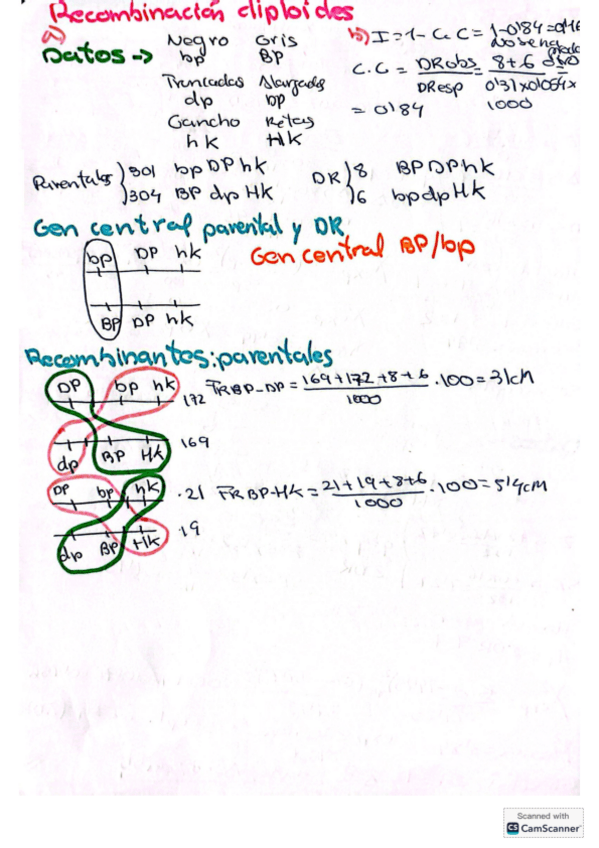 Recombinación diploides
a)
Datos ->
Negro Gris
bp BP
Truncadas Alargadas
dp DP
Gancho Rectas
hk HK
b) I = 1 - C.C = 1 - 0'84 = 0'16
C.C = DRobs = 8+6
DResp 0'31x0'054x
1000
= 0'84
Parentales) 301 bp DP hk
)304 BP dp HK
DR) 8 BP DP hk
)6 bp dp HK
Gen central parental y DR
Gen central BP/bp
bp DP hk
BP DP hk
Recombinantes: parentales
DP bp hk 172
FR BP-DP = 169+172+8+6 · 100 = 31cM
1000
169
dp BP HK
DP bp hk · 21
FR BP-HK = 21+19+8+6 · 100 = 5'4cM
1000
19
dp BP HK
Scanned with
CS CamScanner